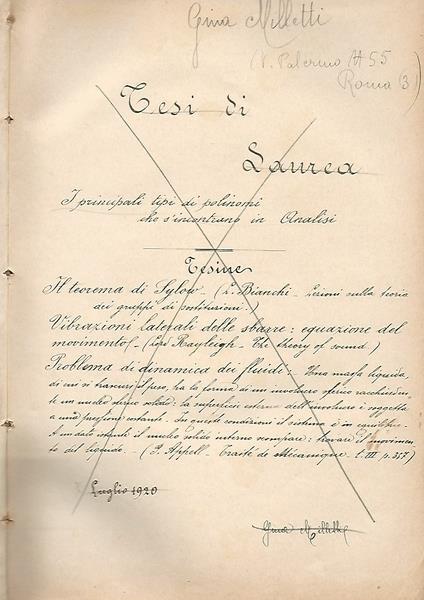 Gina Milletti
(V. Palermo # 55
Roma (3)
Tesi di
Laurea
I principali tipi di polinomi
che s'incontrano in Analisi
Tesine
Il teorema di Sylow - (L. Bianchi - Lezioni sulla teoria
dei gruppi di sostituzioni.)
Vibrazioni laterali delle sbarre: equazione del
movimento - (Rayleigh - The theory of sound.)
Problema di dinamica dei fluidi: - Una massa liquida,
di cui si trascuri il peso, ha la forma di un involucro sferico racchiuden-
te un nucleo sferico solido: la superficie esterna dell'involucro è soggetta
a una pressione costante. In queste condizioni il sistema è in equilibrio.
A un dato istante il nucleo solido interno scompare: trovare il movimen-
to del liquido. - (P. Appell - Traité de Mécanique t. III p. 357.)
Luglio 1920
Gina Milletti